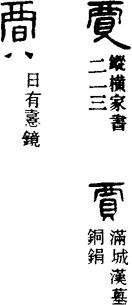 賈
縱橫家書
二一三
賈
滿城漢墓
銅鋗
賈
日有憙鏡